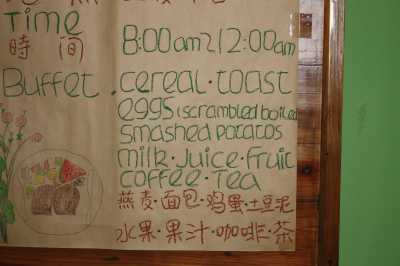 Time 8:00am~12:00am
時 间
Buffet. cereal. toast
eggs (scrambled boiled
smashed potatos
milk. Juice. Fruit
coffee. Tea
燕麦·面包·鸡蛋·土豆泥
水果·果汁·咖啡·茶